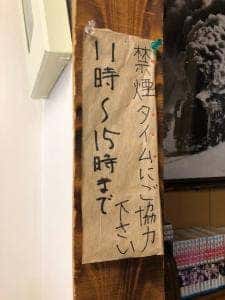 禁煙タイムにご協力
下さい
11時〜15時まで